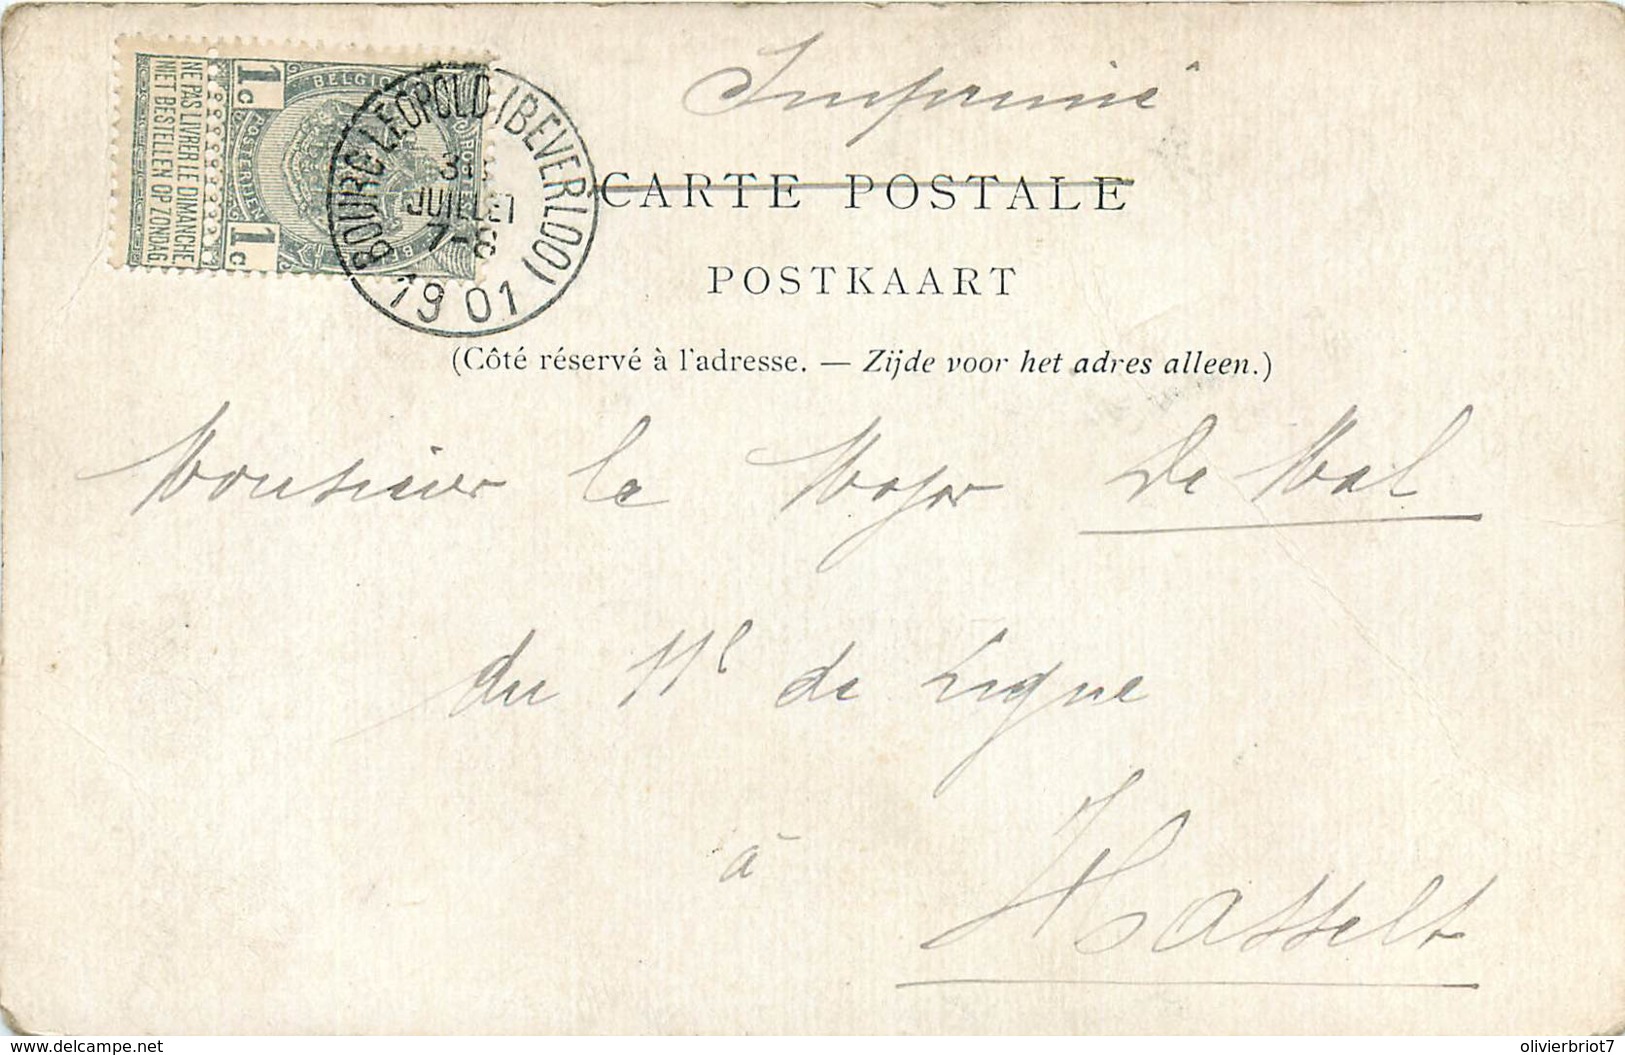 Imprimé
CARTE POSTALE
POSTKAART
(Côté réservé à l'adresse. — Zijde voor het adres alleen.)
NE PAS LIVRER LE DIMANCHE
NIET BESTELLEN OP ZONDAG
1c
1c
BELGIQUE
POSTERIJEN
BOURG-LEOPOLD (BEVERLOO)
JUILLET
7-8
1901
Monsieur le Major De Mal
du 11e de Ligne
à
Hasselt
www.delcampe.net
olivierbriot7